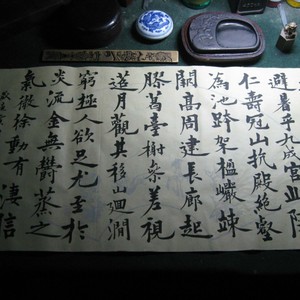 避暑乎九成宮此隋
仁壽冠山抗殿絕壑
為池跨架楹巖竦
闕高周建長廊起
膠葛臺榭參差視
迢月觀其移山迴澗
窮極人欲足尤至於
炎流金無鬱蒸之
氣微徐動有淒信